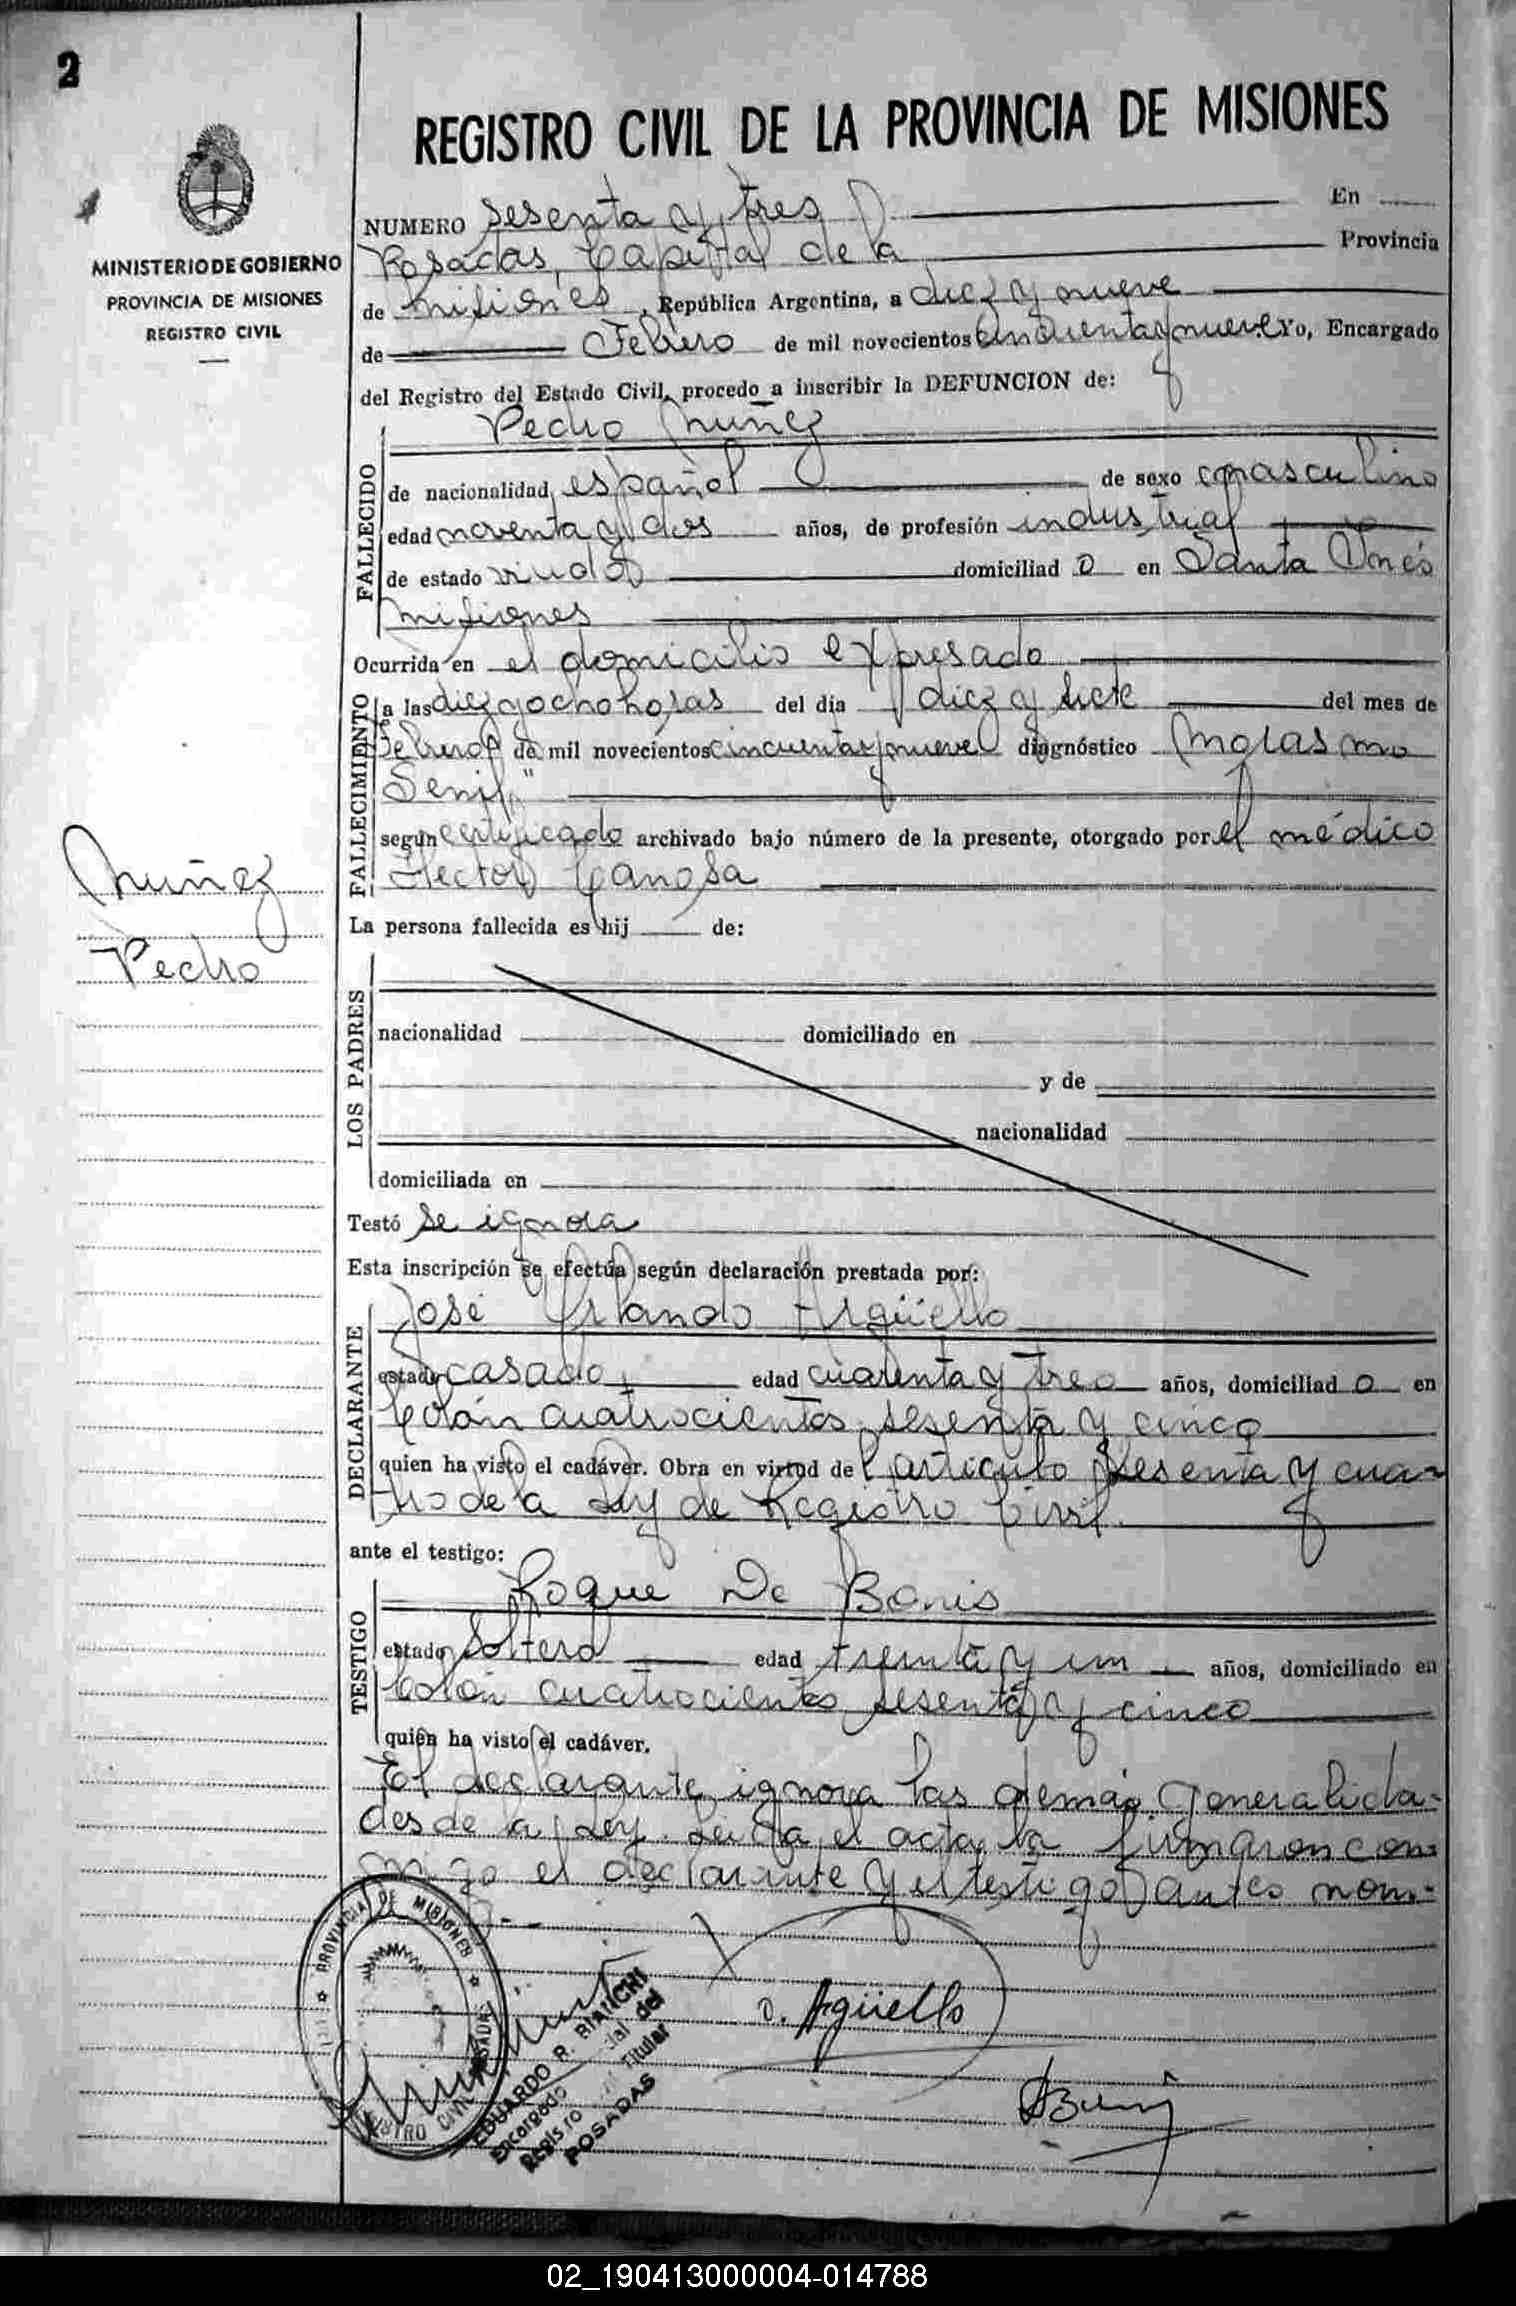 2
MINISTERIO DE GOBIERNO
PROVINCIA DE MISIONES
REGISTRO CIVIL
REGISTRO CIVIL DE LA PROVINCIA DE MISIONES
NUMERO Sesenta y tres En
Posadas, Capital de la Provincia
de Misiones, República Argentina, a diez y nueve
de Febrero de mil novecientos cincuenta y nueve Yo, Encargado
del Registro del Estado Civil, procedo a inscribir la DEFUNCION de:
Pedro Nuñez
FALLECIDO
de nacionalidad español de sexo masculino
edad noventa y dos años, de profesión industrial
de estado viudo domiciliad o en Santa Inés
Misiones
Ocurrida en el domicilio expresado
FALLECIMIENTO
a las diez y ocho horas del día diez y siete del mes de
Febrero de mil novecientos cincuenta y nueve diagnóstico Marasmo
Senil"
según certificado archivado bajo número de la presente, otorgado por el médico
Hector Canosa
Nuñez
Pedro
La persona fallecida es hij de:
LOS PADRES
nacionalidad domiciliado en
y de
nacionalidad
domiciliada en
Testó se ignora
Esta inscripción se efectúa según declaración prestada por:
DECLARANTE
José Orlando Argüello
estado casado, edad cuarenta y tres años, domiciliad o en
Colón cuatrocientos sesenta y cinco
quien ha visto el cadáver. Obra en virtud del articulo sesenta y cua-
tro de la Ley de Registro Civil.
ante el testigo:
TESTIGO
Roque De Bonis
estado soltero edad treinta y un años, domiciliado en
Colón cuatrocientos sesenta y cinco
quien ha visto el cadáver.
El declarante ignora las demás generalida-
des de la Ley. Leida el acta, la firmaron con-
migo el declarante y el testigo antes nom-
PROVINCIA DE MISIONES
REGISTRO CIVIL POSADAS
EDUARDO R. BIANCHI
Encargado del
Registro Titular
POSADAS
O. Argüello
02_190413000004-014788